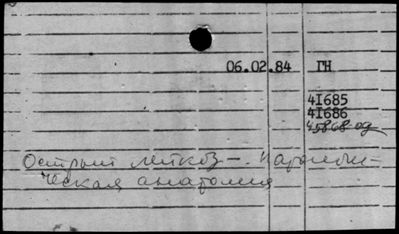 06.02.84 ГН
41685
41686
45868 од
Острый лейкоз — патологи-
ческая анатомия